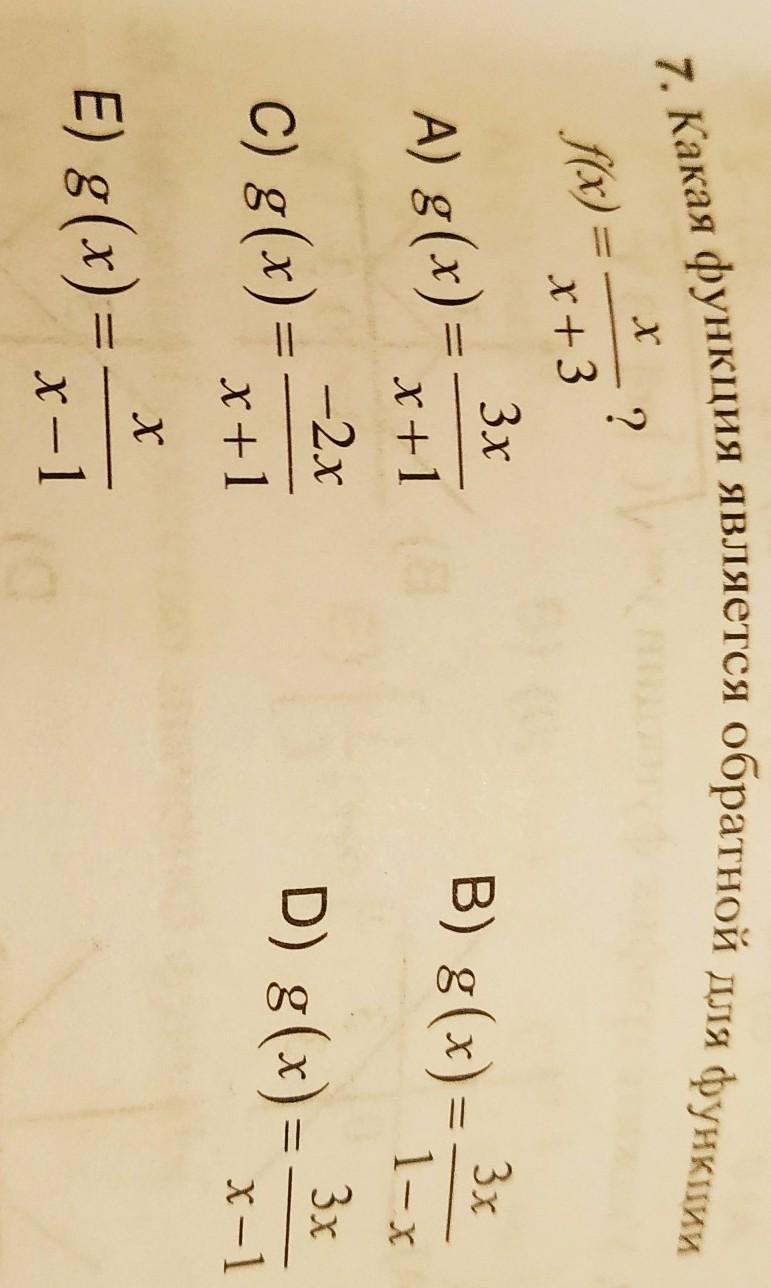 7. Какая функция является обратной для функции
f(x) = x/(x + 3) ?
A) g(x) = 3x/(x + 1)
B) g(x) = 3x/(1 − x)
C) g(x) = −2x/(x + 1)
D) g(x) = 3x/(x − 1)
E) g(x) = x/(x − 1)